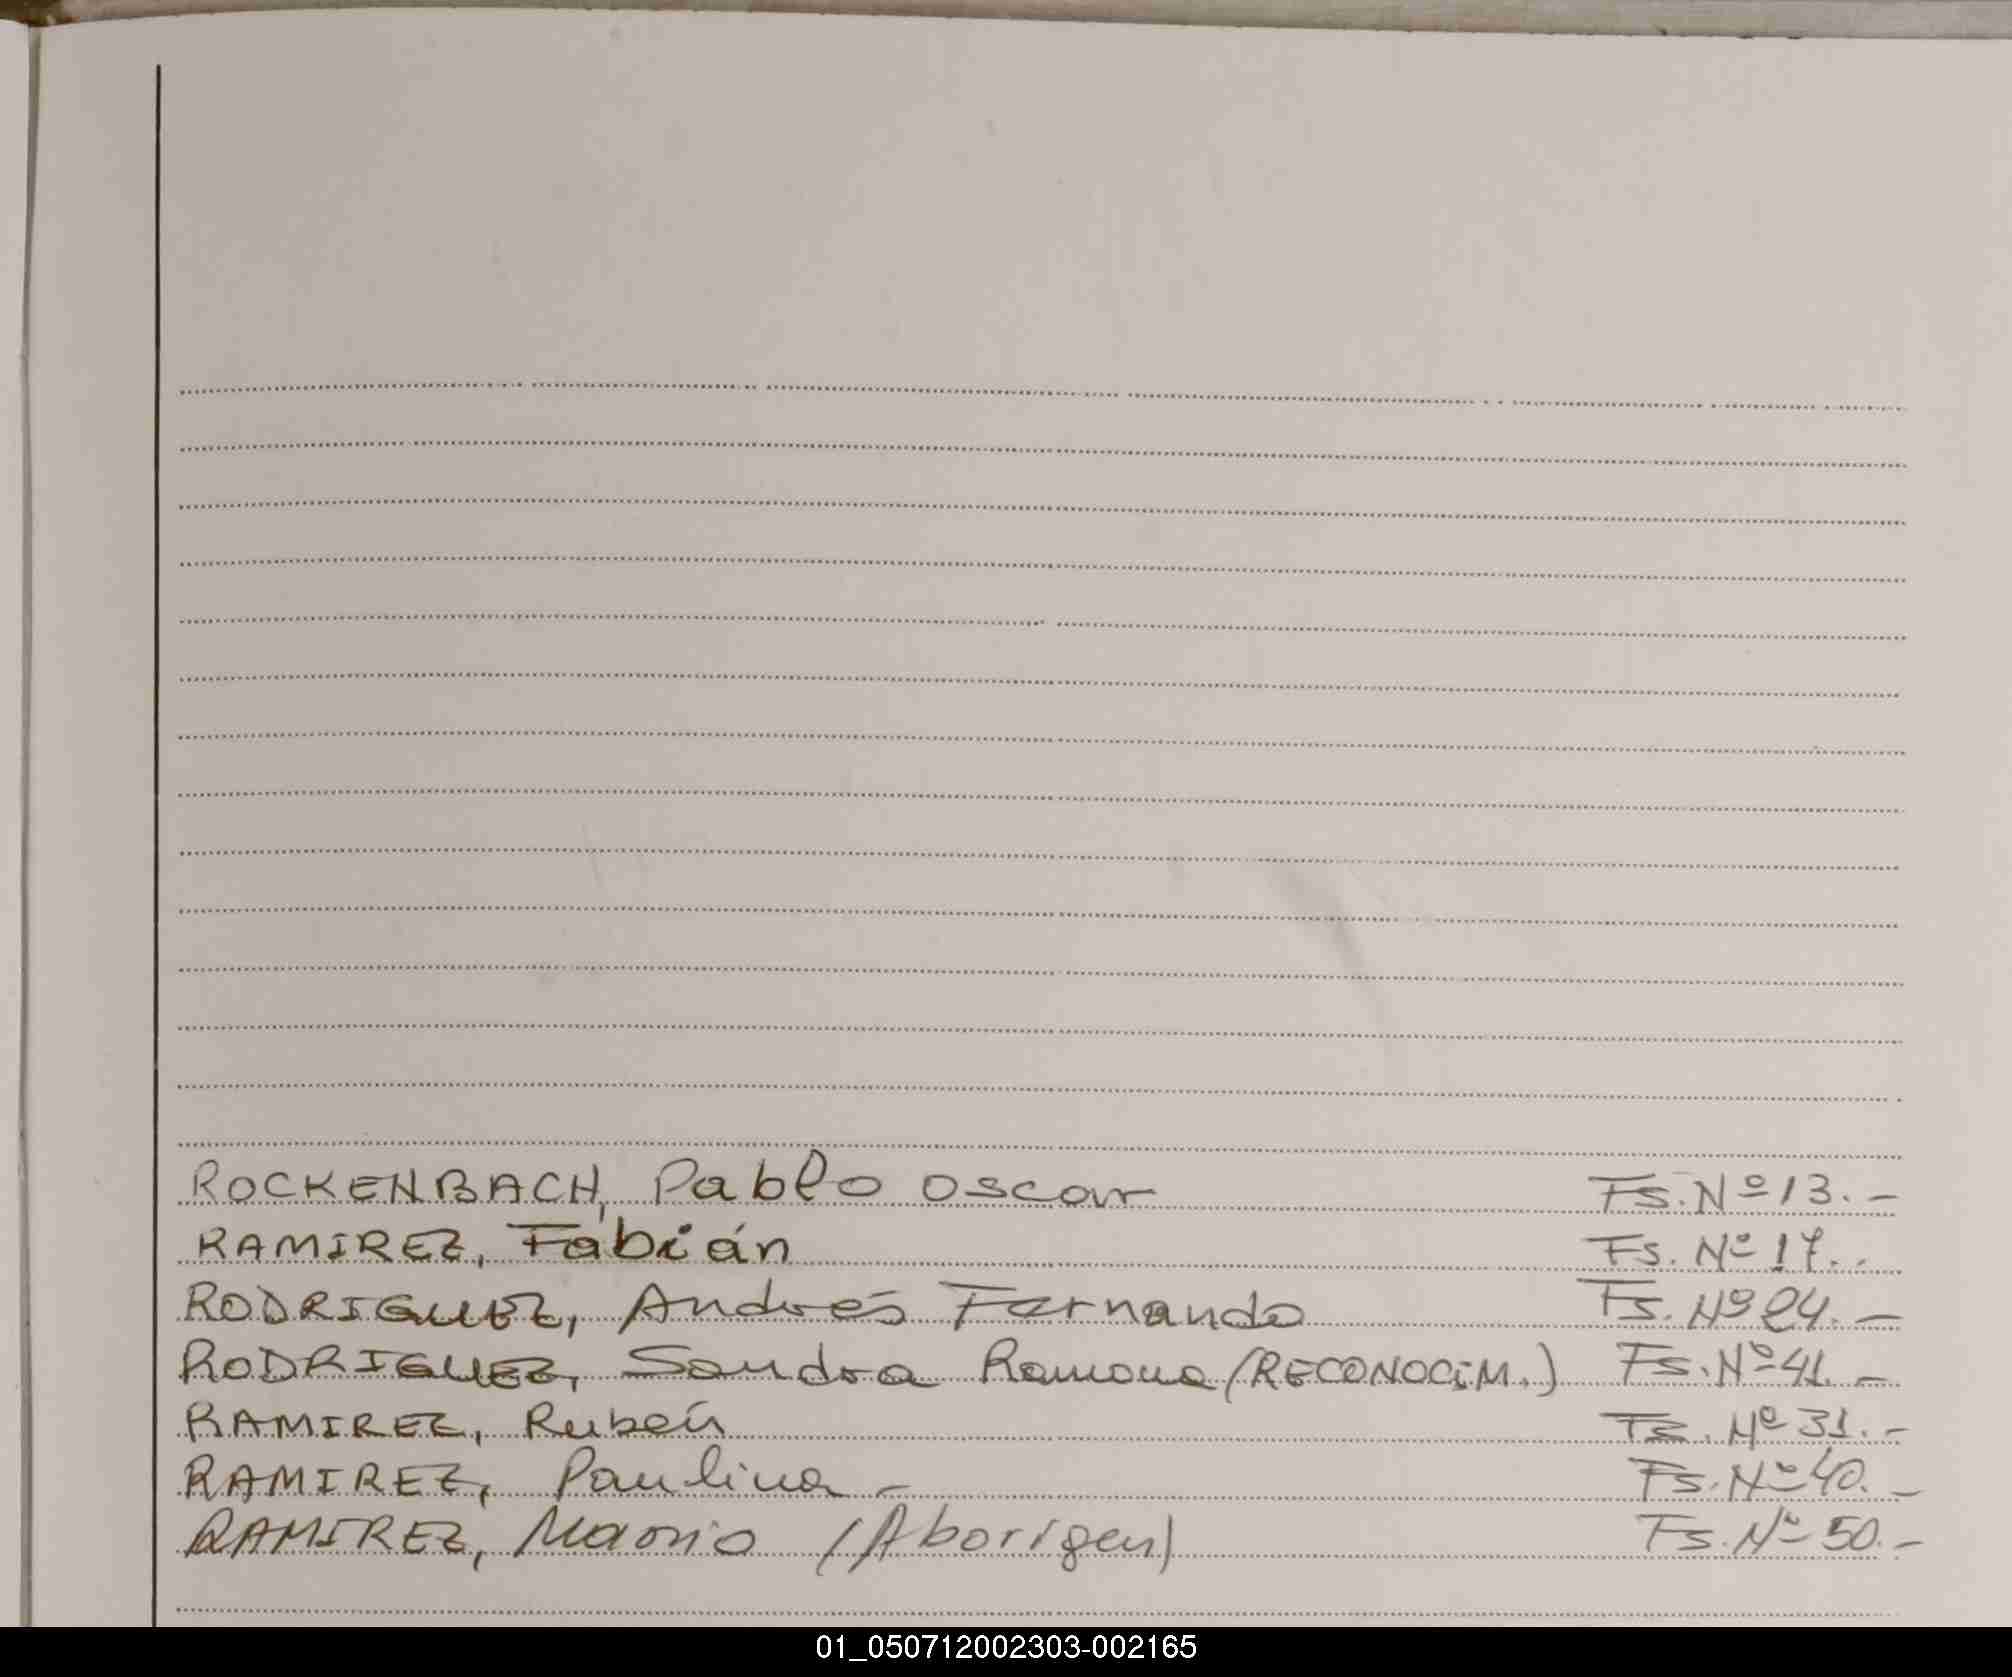 ROCKENBACH, Pablo Oscar Fs. Nº 13.-
RAMIREZ, Fabián Fs. Nº 17..
RODRIGUEZ, Andrés Fernando Fs. Nº 24.-
RODRIGUEZ, Sandra Ramona (RECONOCIM.) Fs. Nº 41.-
RAMIREZ, Rubén Fs. Nº 31.-
RAMIREZ, Paulina - Fs. Nº 40.-
RAMIREZ, Mario (Aborigen) Fs. Nº 50.-
01_050712002303-002165